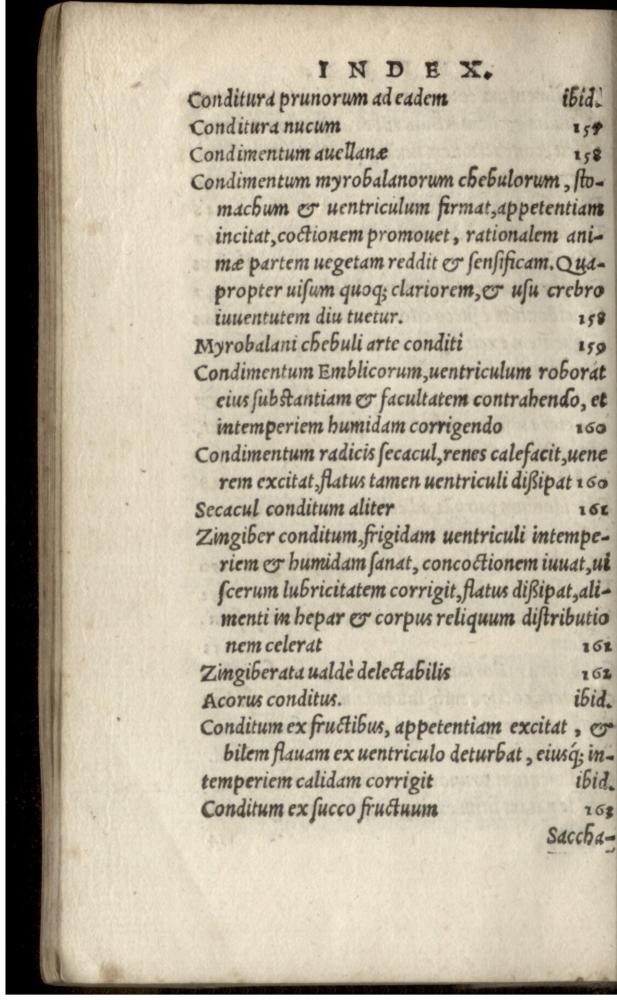 INDEX.
Conditura prunorum ad eadem ibid.
Conditura nucum 157
Condimentum auellanæ 158
Condimentum myrobalanorum chebulorum, sto-
machum & uentriculum firmat, appetentiam
incitat, coctionem promouet, rationalem ani-
mæ partem uegetam reddit & sensificam. Qua-
propter uisum quoq; clariorem, & usu crebro
iuuentutem diu tuetur. 158
Myrobalani chebuli arte conditi 159
Condimentum Emblicorum, uentriculum roborat
eius substantiam & facultatem contrahendo, et
intemperiem humidam corrigendo 160
Condimentum radicis secacul, renes calefacit, uene
rem excitat, flatus tamen uentriculi dißipat 160
Secacul conditum aliter 161
Zingiber conditum, frigidam uentriculi intempe-
riem & humidam sanat, concoctionem iuuat, ui
scerum lubricitatem corrigit, flatus dißipat, ali-
menti in hepar & corpus reliquum distributio
nem celerat 161
Zingiberata ualdè delectabilis 162
Acorus conditus. ibid.
Conditum ex fructibus, appetentiam excitat, &
bilem flauam ex uentriculo deturbat, eiusq́; in-
temperiem calidam corrigit ibid.
Conditum ex succo fructuum 163
Saccha-